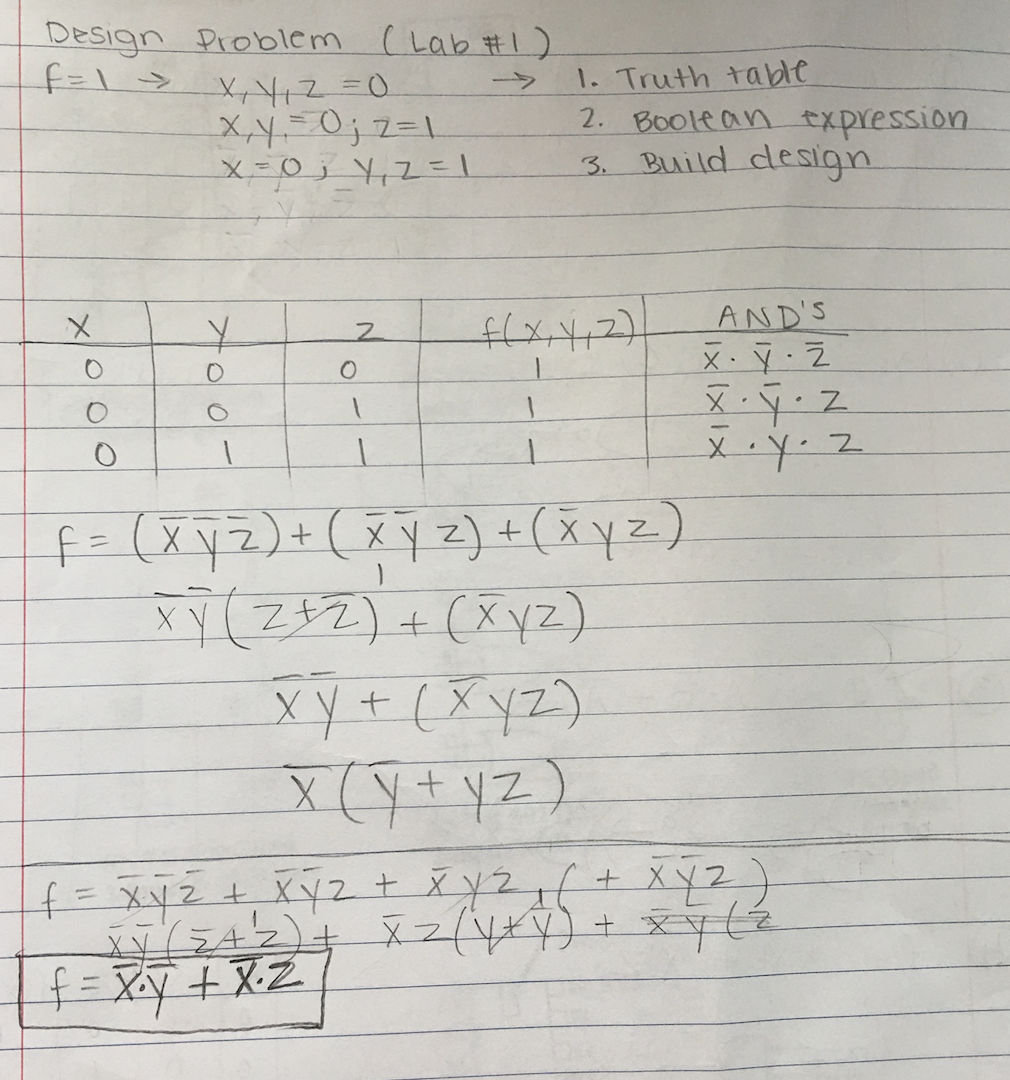 Design Problem (Lab #1)
f=1 → x, y, z = 0 → 1. Truth table
x, y, = 0; z=1 2. Boolean expression
x = 0; y, z = 1 3. Build design
x y z f(x, y, z) AND'S
0 0 0 1 x̅ · y̅ · z̅
0 0 1 1 x̅ · y̅ · z
0 1 1 1 x̅ · y · z
f = (x̅ y̅ z̅) + (x̅ y̅ z) + (x̅ y z)
1
x̅ y̅ (z + z̅) + (x̅ y z)
x̅ y̅ + (x̅ y z)
x̅ (y̅ + y z)
f = x̅ y̅ z̅ + x̅ y̅ z + x̅ y z, ( + x̅ y̅ z )
1 1
x̅ y̅ (z̅ + z) + x̅ z (y + y̅) + x̅ y̅ (z
f = x̅·y̅ + x̅·z